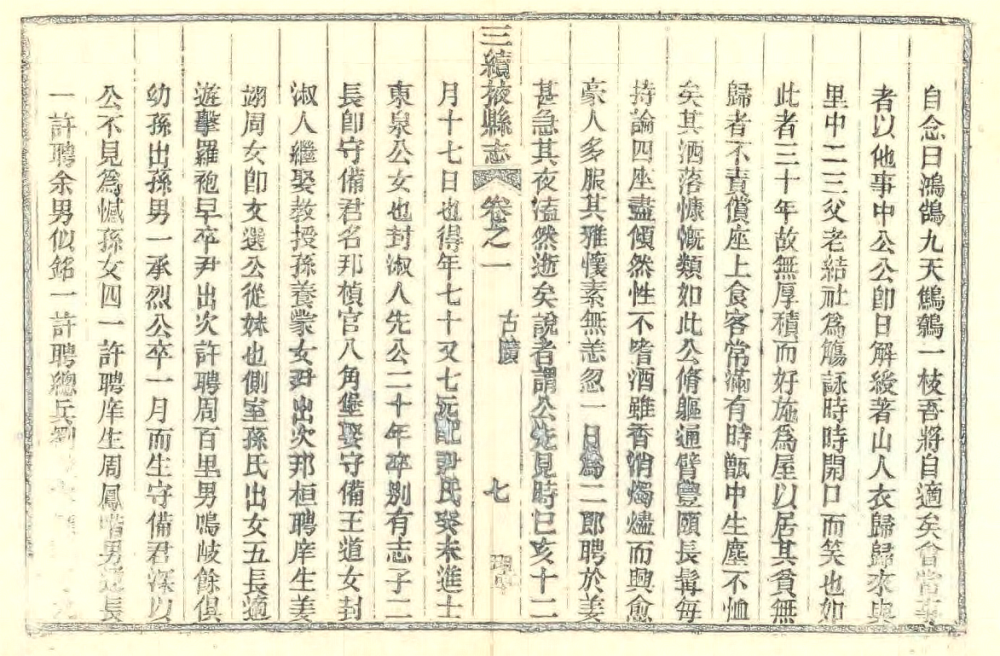 自念曰鴻鵠九天鷦鷯一枝吾將自適矣會當事
者以他事中公公卽日解綬著山人衣歸歸來與
里中二三父老結社爲觴詠時時開口而笑也如
此者三十年故無厚積而好施爲屋以居其貧無
歸者不責償座上食客常滿有時甑中生塵不恤
矣其洒落慷慨類如此公脩軀通臂豐頤長髯每
持論四座盡傾然性不嗜酒雖香消燭燼而興愈
豪人多服其雅懷素無恙忽一日爲二郎聘於姜
甚急其夜溘然逝矣說者謂公先見時己亥十二
三續掖縣志 卷之一 古蹟 七
月十七日也得年七十又七元配尹氏癸未進士
東泉公女也封淑人先公二十年卒別有志子二
長卽守備君名邦楨官八角堡娶守備王道女封
淑人繼娶教授孫養蒙女尹出次邦桓聘庠生姜
翊周女卽文選公從妹也側室孫氏出女五長適
遊擊羅袍早卒尹出次許聘周百里男鳴岐餘俱
幼孫出孫男一承烈公卒一月而生守備君深以
公不見爲憾孫女四一許聘庠生周鳳喈男還長
一許聘余男似銘一許聘總兵劉